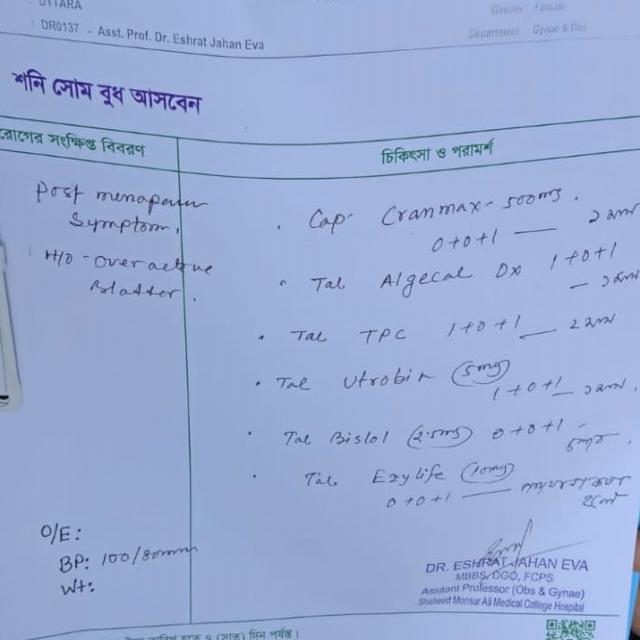 UTTARA
: DR0137 - Asst. Prof. Dr. Eshrat Jahan Eva
Gender : Female
Department : Gynae & Obs
শনি সোম বুধ আসবেন
রোগের সংক্ষিপ্ত বিবরণ
চিকিৎসা ও পরামর্শ
Post menopausal
Symptom.
H/O - Over active
Bladder.
. Cap. Cranmax - 500mg.
0+0+1
. Tab Algecal Dx 1+0+1
. Tab TPC 1+0+1
. Tab Utrobin (5mg)
1+0+1
. Tab Bislol (2.5mg) 0+0+1
. Tab Ezylife (10mg)
0+0+1
O/E:
BP: 100/80mm
Wt:
DR. ESHRAT JAHAN EVA
MBBS, DGO, FCPS
Assistant Professor (Obs & Gynae)
Shaheed Monsur Ali Medical College Hospital
(সাত) দিন পর্যন্ত।